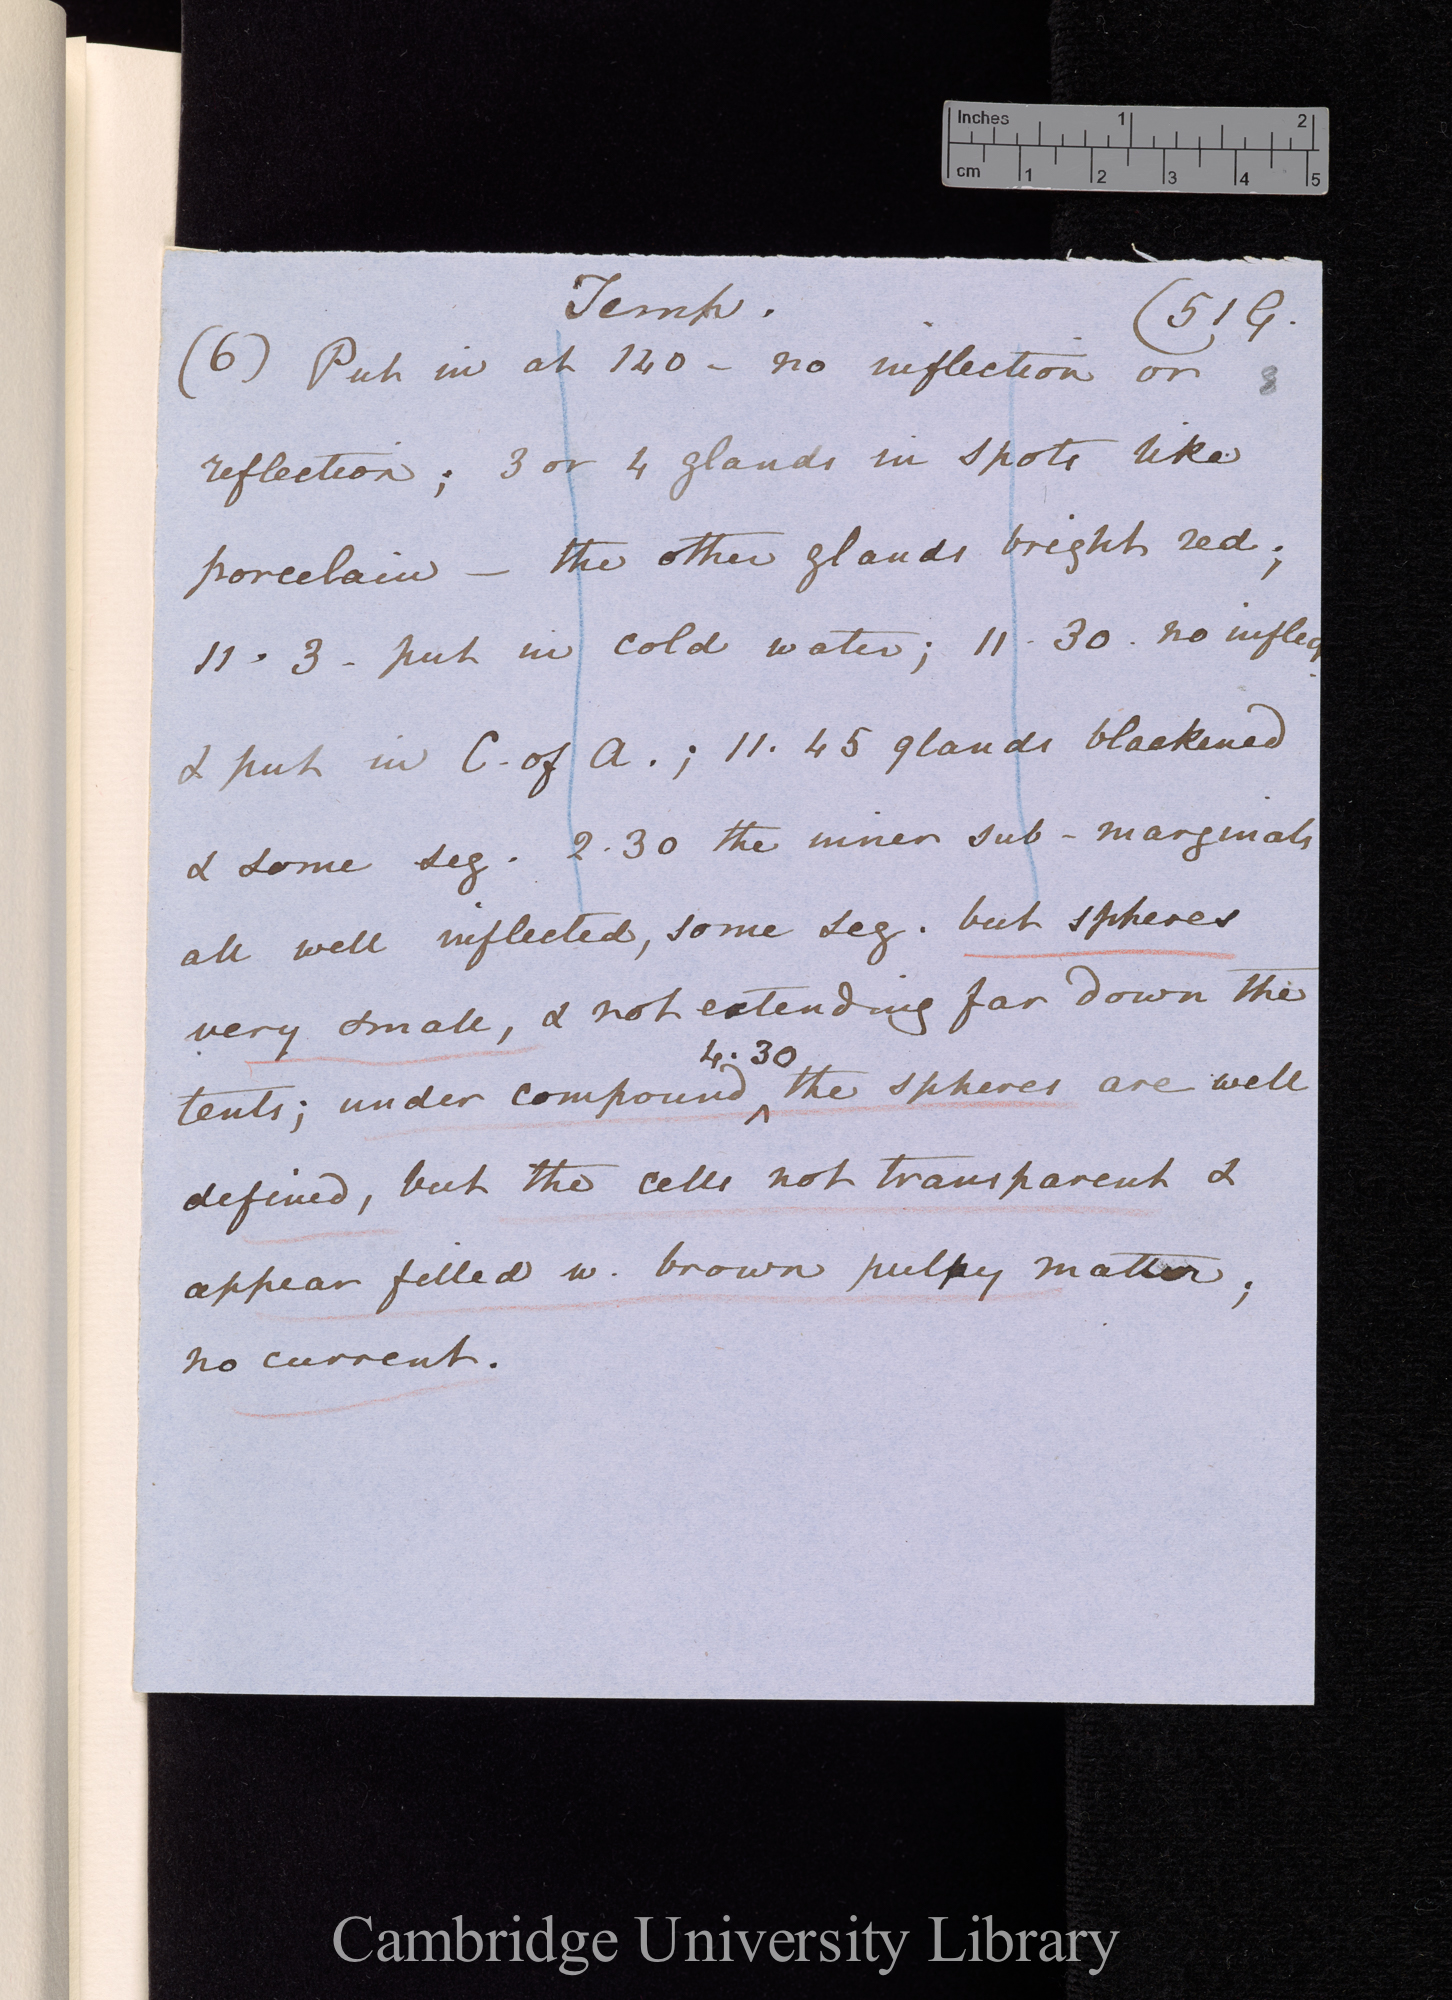 Inches 1 2
cm 1 2 3 4 5
Temp. (51 G.
(6) Put in at 140 - no inflection or 8
reflection; 3 or 4 glands in spots like
porcelain — the other glands bright red;
11 . 3 - put in cold water; 11 . 30 . no inflec
& put in C. of A. ; 11. 45 glands blackened
& some seg. 2.30 the inner sub-marginals
all well inflected, some seg. but spheres
very small, & not extending far down the
4.30
tents; under compound ^ the spheres are well
defined, but the cells not transparent &
appear filled w. brown pulpy matter;
no current.
Cambridge University Library